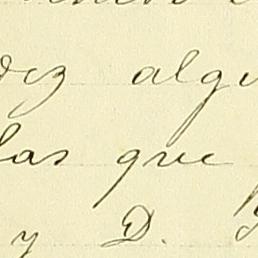 dez algu
las que
y D.